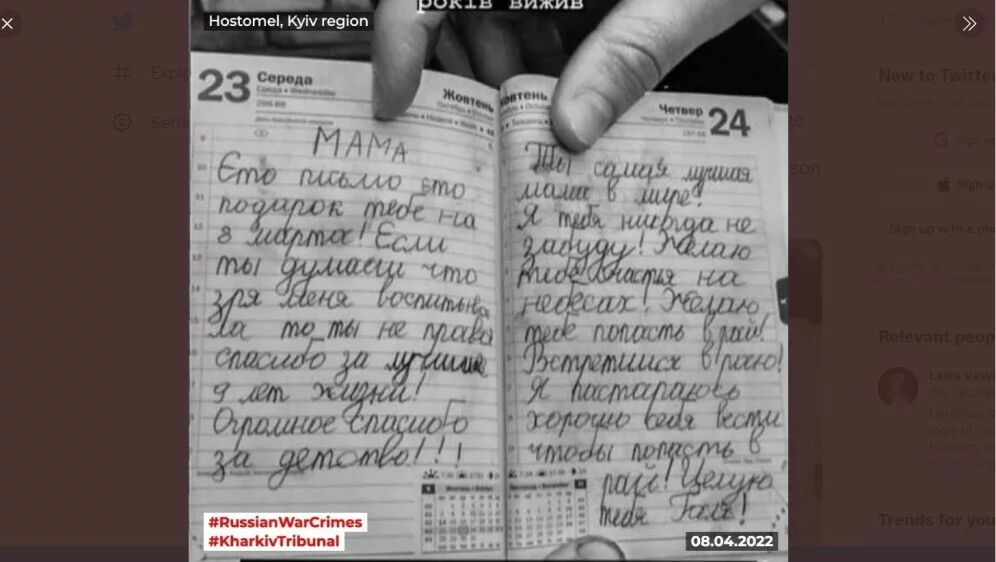 років вижив
Hostomel, Kyiv region
23 Середа
Среда • Wednesday
Жовтень
МАМА
Єто письмо єто
подарок тебе на
8 марта! Если
ты думаеш что
зря меня воспитыва
ла то ты не права
спасибо за лучшие
9 лет жизни!
Огромное спасибо
за детство!!!
Жовтень
Четвер 24
Ты самая лучшая
мама в мире!
Я тебя никогда не
забуду! Желаю
тебе счастья на
небесах! Желаю
тебе попасть в рай!
Встретимся в раю!
Я пастараюсь
хорошо себя вести
чтобы попасть в
рай! Целую
тебя Галя!
#RussianWarCrimes
#KharkivTribunal
08.04.2022
New to Twitter
Sign up with a pho
Relevant peop
Lesia Vasy
Trends for you